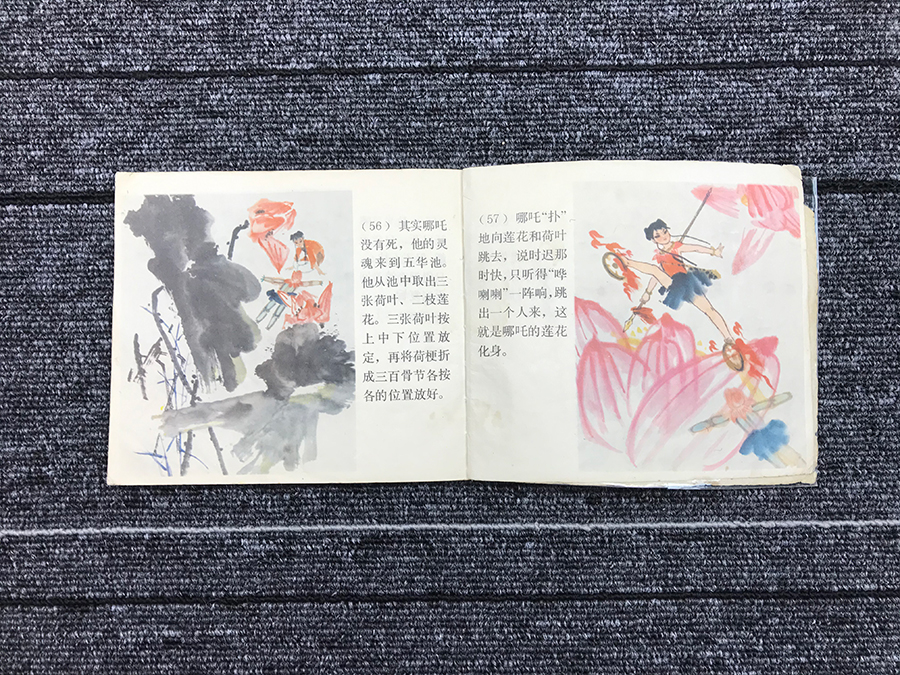 （56）其实哪吒
没有死，他的灵
魂来到五华池。
他从池中取出三
张荷叶、二枝莲
花。三张荷叶按
上中下位置放
定，再将荷梗折
成三百骨节各按
各的位置放好。
（57）哪吒“扑”
地向莲花和荷叶
跳去，说时迟那
时快，只听得“哗
喇喇”一阵响，跳
出一个人来，这
就是哪吒的莲花
化身。